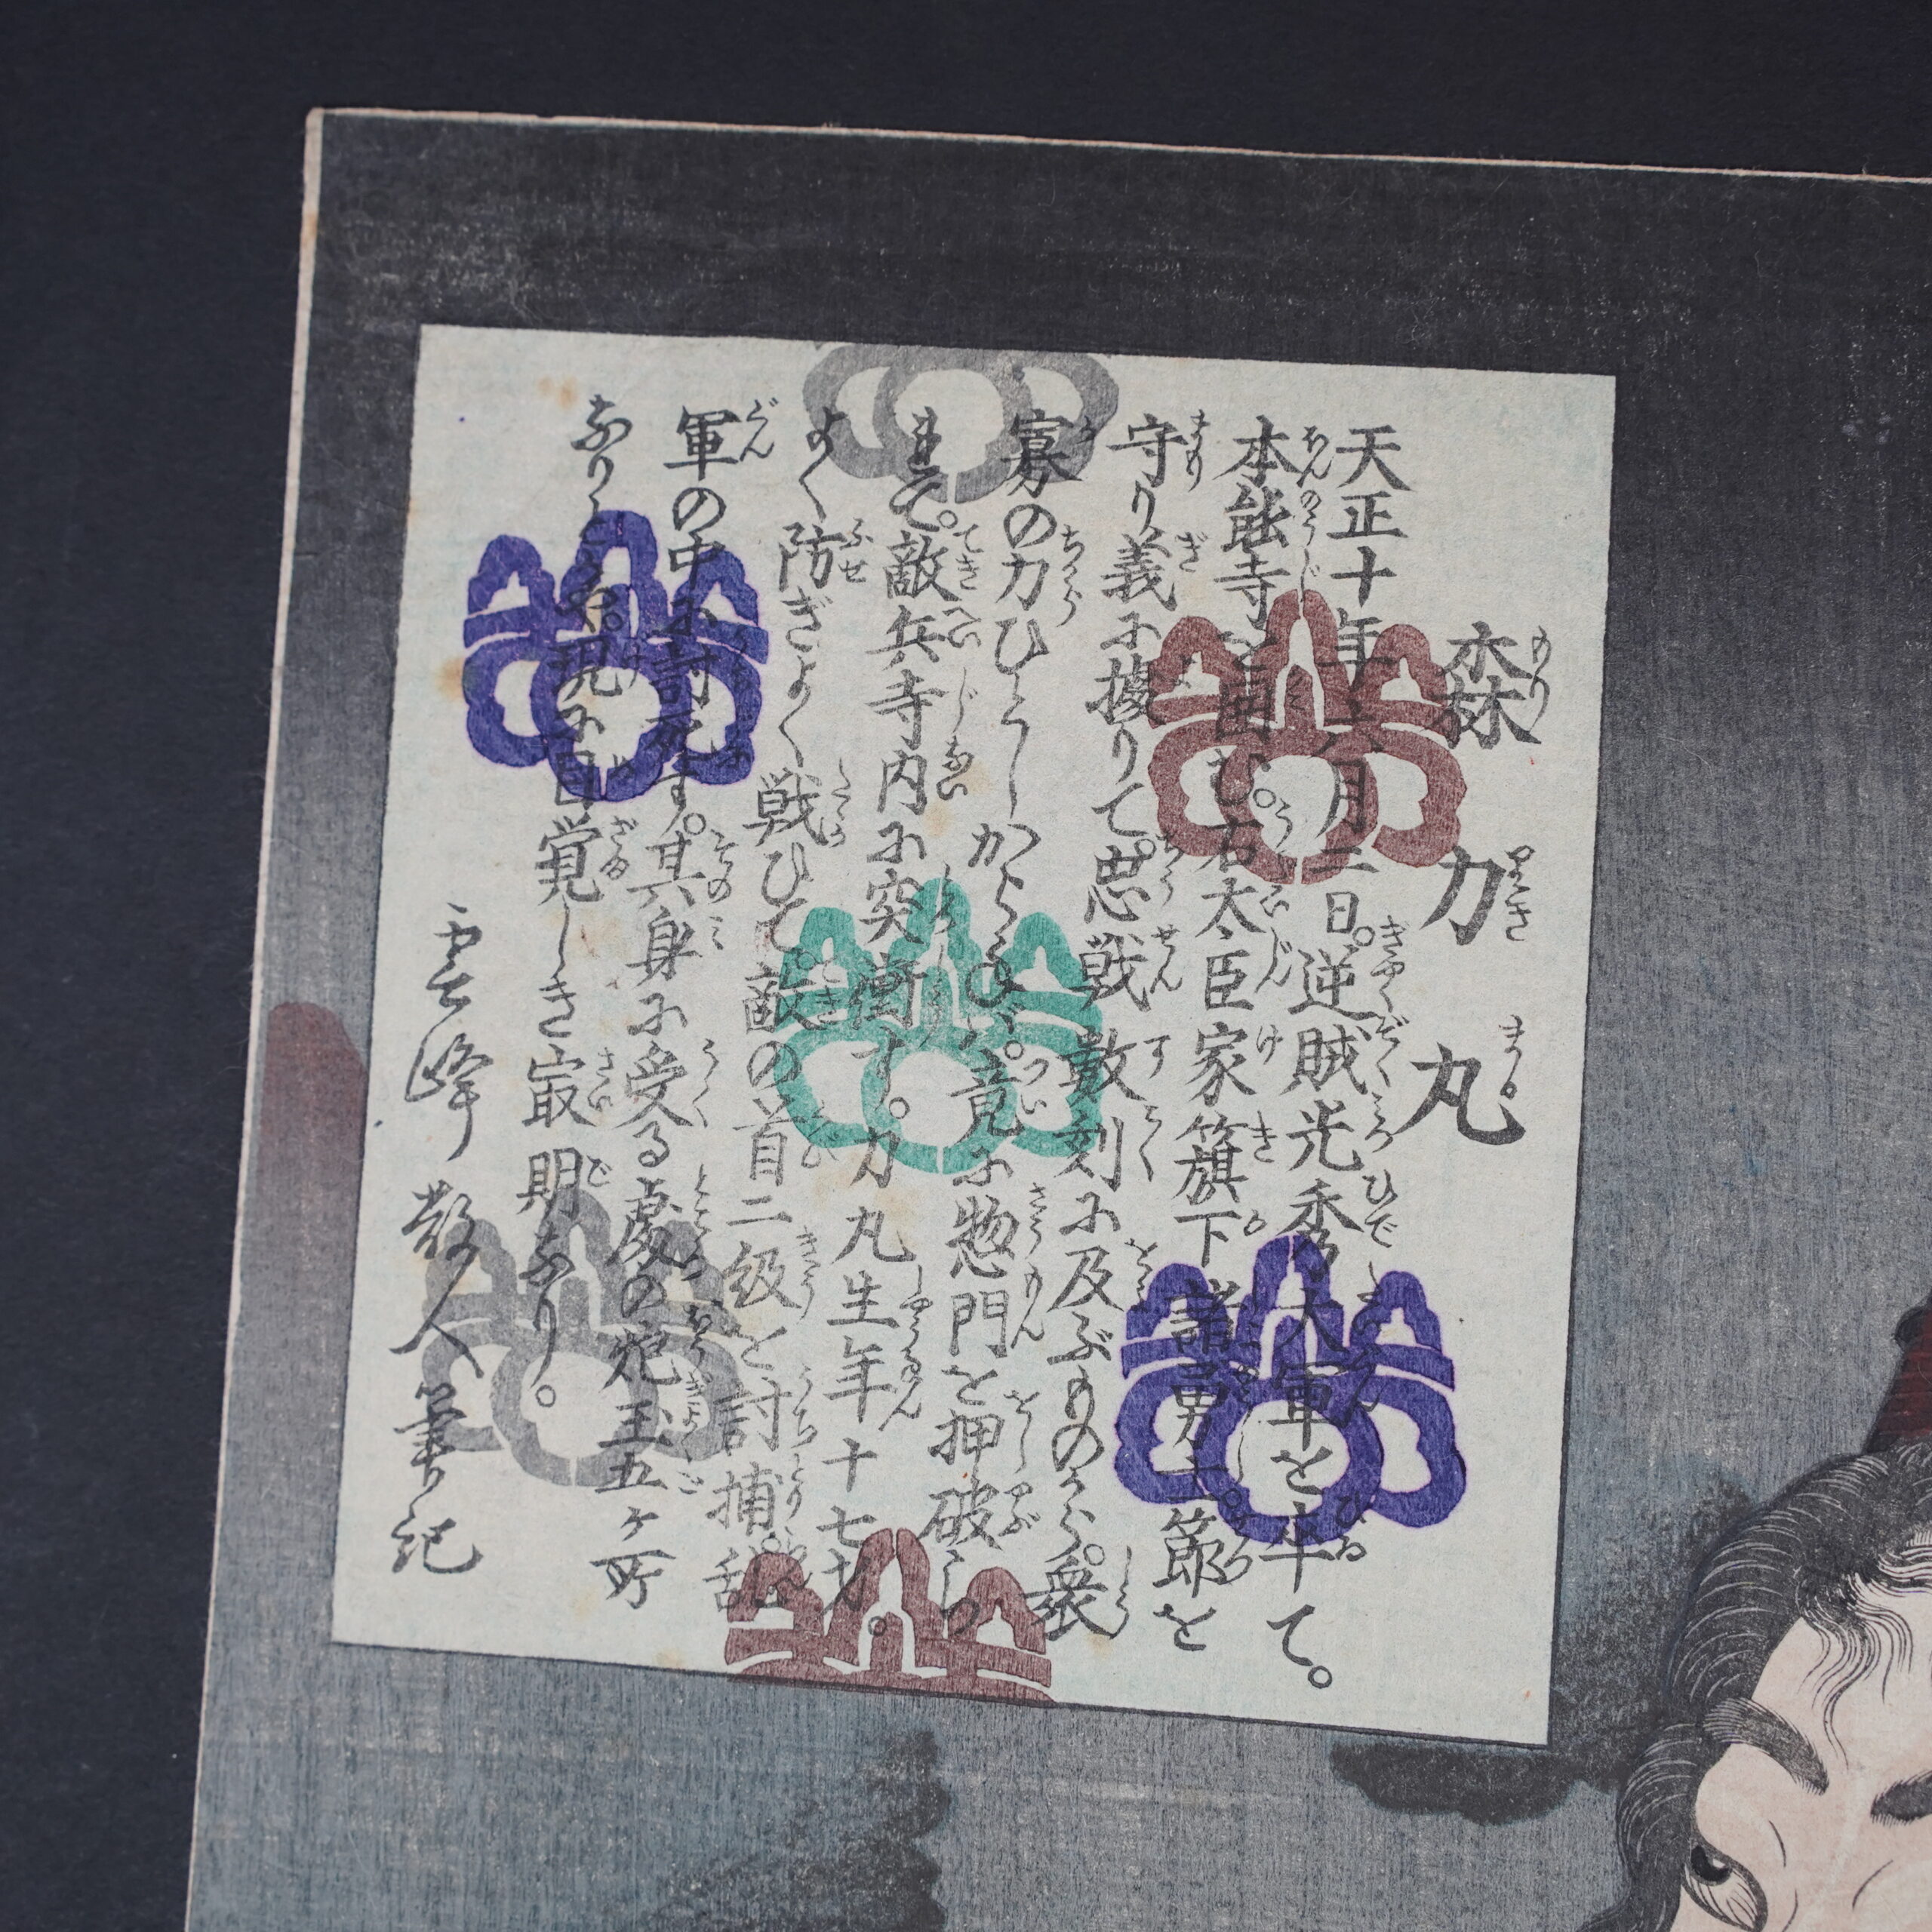 森力丸
天正十年六月二日。逆賊光秀大軍を率て。
本能寺を囲む。右大臣家籏下諸勇士節を
守り義に據りて。思戦数刻に及ぶものから。衆
寡の力ひとしからねバ。竟に惣門を押破ら
れて。敵兵寺内に突衝す。力丸生年十七才。
よく防ぎよく戦ひて。敵の首二級を討捕。乱
軍の中に討死す。其身に受る處の炮玉五ヶ所
なりとぞや。現に目覚しき最期なり。
雲峰散人筆記